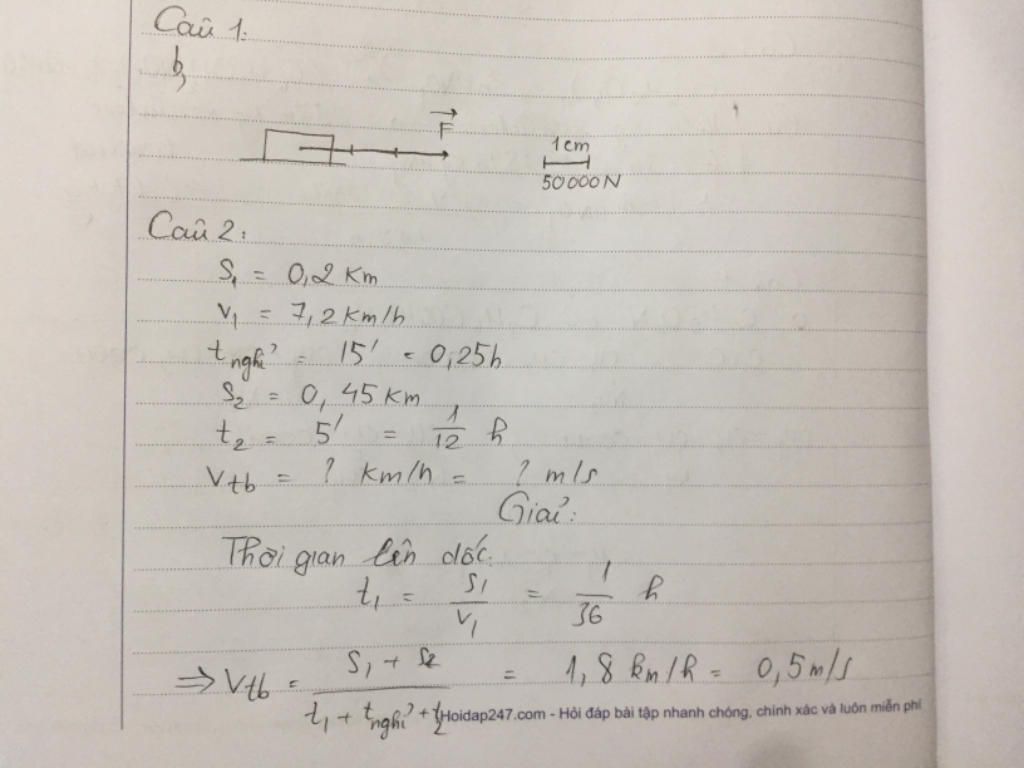 Câu 1.
b,
F
1cm
50000N
Câu 2:
S₁ = 0,2 Km
V₁ = 7,2 Km/h
t nghỉ = 15' = 0,25h
S₂ = 0,45 Km
t₂ = 5' = 1/12 h
Vtb = ? km/h = ? m/s
Giải:
Thời gian lên dốc:
t₁ = S₁/V₁ = 1/36 h
⇒ Vtb = (S₁ + S₂)/(t₁ + t nghỉ + t₂) = 1,8 km/h = 0,5 m/s
Hoidap247.com - Hỏi đáp bài tập nhanh chóng, chính xác và luôn miễn phí